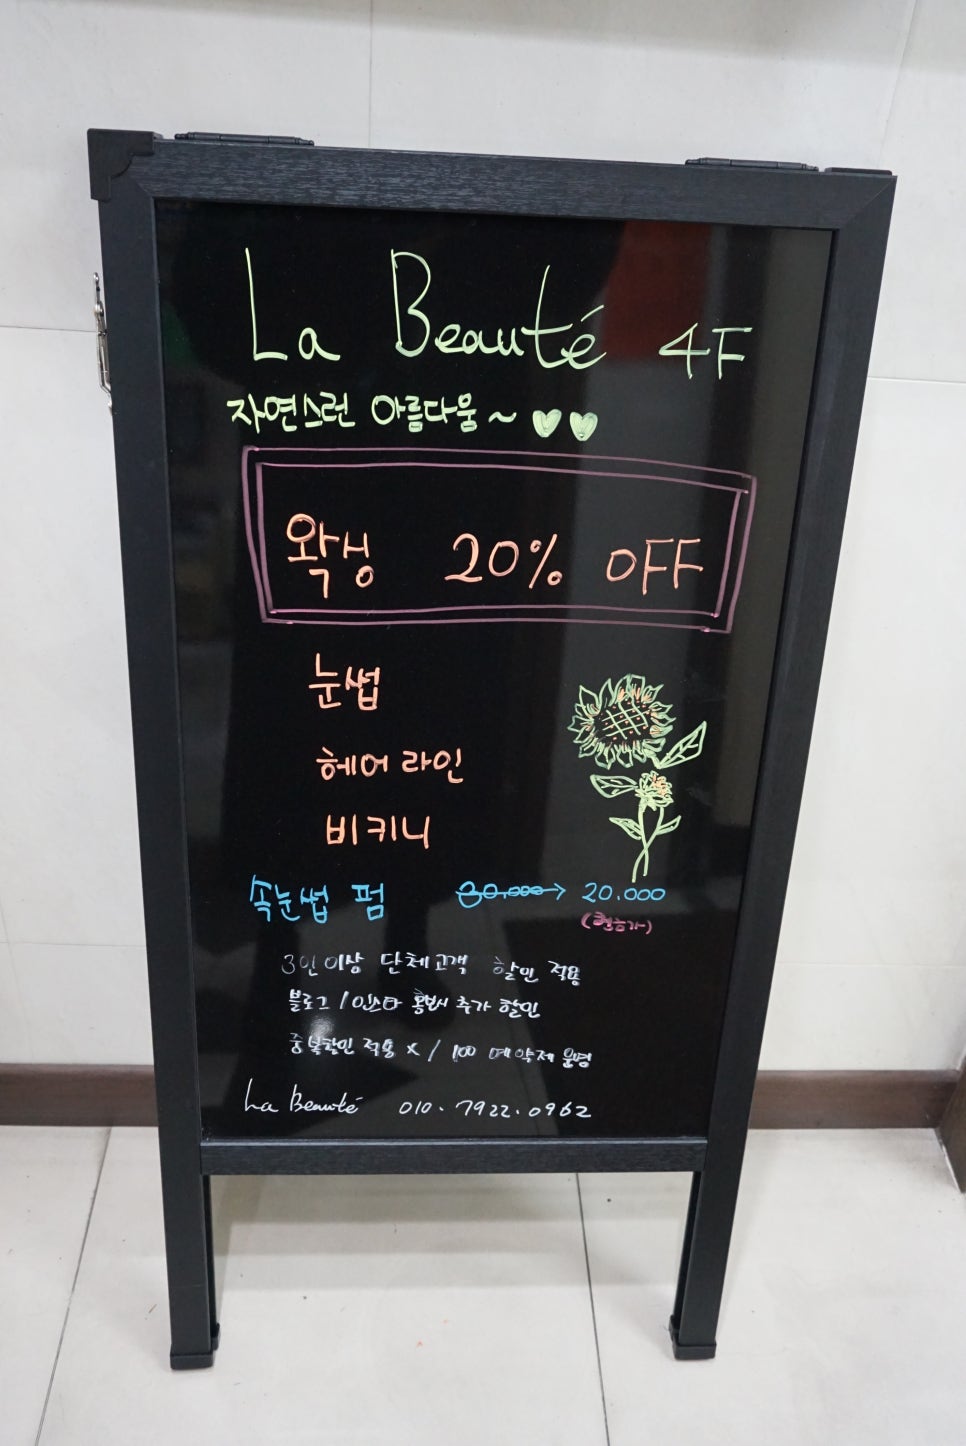 La Beauté 4F
자연스런 아름다움~ ♥♥
왁싱 20% OFF
눈썹
헤어 라인
비키니
속눈썹 펌 30,000→ 20.000
(현금가)
3인이상 단체고객 할인 적용
블로그 / 인스타 홍보시 추가 할인
중복할인 적용 x / 100 예약제 운영
La Beauté 010. 7922. 0962